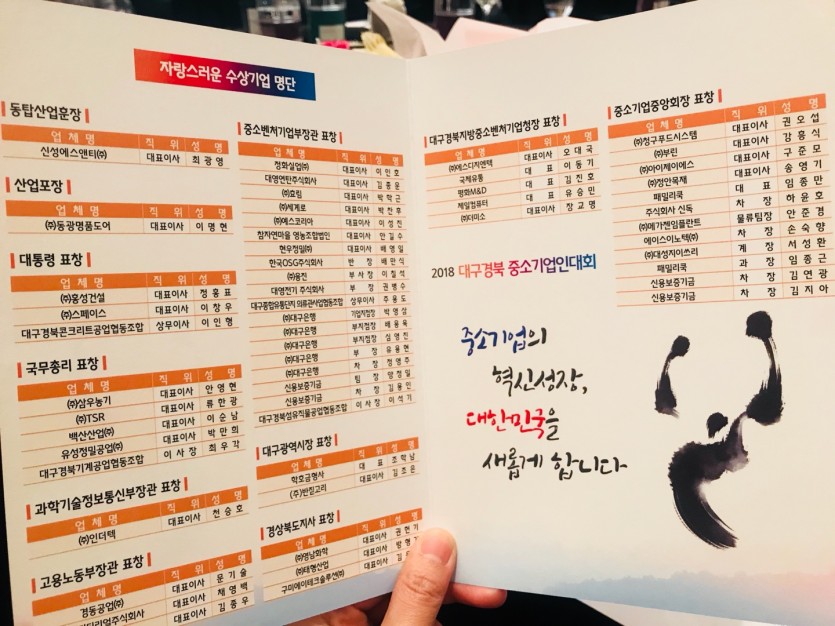 자랑스러운 수상기업 명단
동탑산업훈장
업 체 명 직 위 성 명
신성에스앤티㈜ 대표이사 최 광 영
산업포장
업 체 명 직 위 성 명
㈜동광명품도어 대표이사 이 명 현
대통령 표창
업 체 명 직 위 성 명
㈜홍성건설 대표이사 정 홍 표
㈜스페이스 대표이사 이 창 우
대구경북콘크리트공업협동조합 상무이사 이 인 형
국무총리 표창
업 체 명 직 위 성 명
㈜삼우농기 대표이사 안 영 현
㈜TSR 대표이사 류 한 광
백산산업㈜ 대표이사 이 순 남
유성정밀공업㈜ 대표이사 박 만 희
대구경북기계공업협동조합 이 사 장 최 우 각
과학기술정보통신부장관 표창
업 체 명 직 위 성 명
㈜인더텍 대표이사 천 승 호
고용노동부장관 표창
업 체 명 직 위 성 명
경동공업㈜ 대표이사 문 기 술
대표이사 채 영 백
대표이사 김 종 우
중소벤처기업부장관 표창
업 체 명 직 위 성 명
정화실업㈜ 대표이사 이 인 호
대영연탄주식회사 대표이사 김 종 윤
㈜효림 대표이사 박 학 근
㈜세계로 대표이사 박 찬 후
㈜예스코리아 대표이사 이 성 진
참자연마을 영농조합법인 대표이사 안 길 수
현우정밀㈜ 대표이사 배 영 일
한국OSG주식회사 반 장 배 만 식
㈜용진 부 사 장 이 칠 석
대영전기 주식회사 부 장 권 병 수
대구종합유통단지 의류관사업협동조합 상무이사 주 용 도
㈜대구은행 기업지점장 박 영 삼
㈜대구은행 부지점장 배 용 욱
㈜대구은행 부지점장 심 영 진
㈜대구은행 부 장 유 용 현
㈜대구은행 차 장 정 영 주
신용보증기금 팀 장
신용보증기금 차 장 김 용 민
대구경북섬유직물공업협동조합 이 사 장 이 석 기
대구광역시장 표창
업 체 명 직 위 성 명
학호금형사 대 표 조 학 남
(주)반짇고리 대표이사 김 조 은
경상북도지사 표창
업 체 명 직 위 성 명
㈜영남화학 대표이사 권 헌 기
㈜태형산업 대표이사 방
구미에이테크솔루션㈜ 대표이사 김
대구경북지방중소벤처기업청장 표창
업 체 명 직 위 성 명
㈜에스디지엔텍 대표이사 오 대 국
국제유통 대 표 이 동 기
평화M&D 대 표 김 진 호
제일컴퓨터 대 표 유 승 민
㈜더미소 대표이사 장 교 명
중소기업중앙회장 표창
업 체 명 직 위 성 명
㈜청구푸드시스템 대표이사 권 오 섭
㈜부린 대표이사 강 홍 식
㈜아이제이에스 대표이사 구 준 모
㈜정안목재 대표이사 송 영 기
패밀리쿡 대 표 임 종 만
주식회사 신독 차 장 하 윤 호
㈜메가젠임플란트 물류팀장 안 준 경
에이스이노텍㈜ 차 장 손 숙 향
㈜대성지이쓰리 계 장 서 성 환
패밀리쿡 과 장 임 종 근
신용보증기금 차 장 김 연 광
신용보증기금 차 장 김 지 아
2018 대구경북 중소기업인대회
중소기업의
혁신성장,
대한민국을
새롭게 합니다